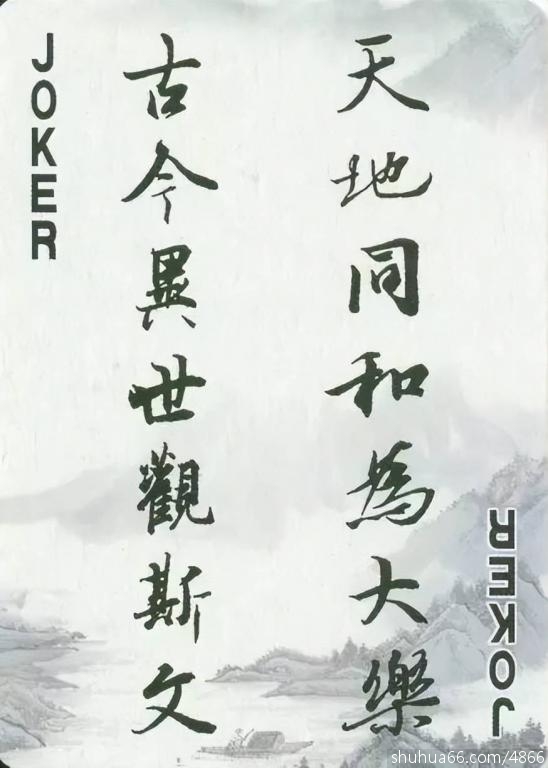 JOKER
天地同和為大樂
古今異世觀斯文
JOKER
shuhua66.com/4866